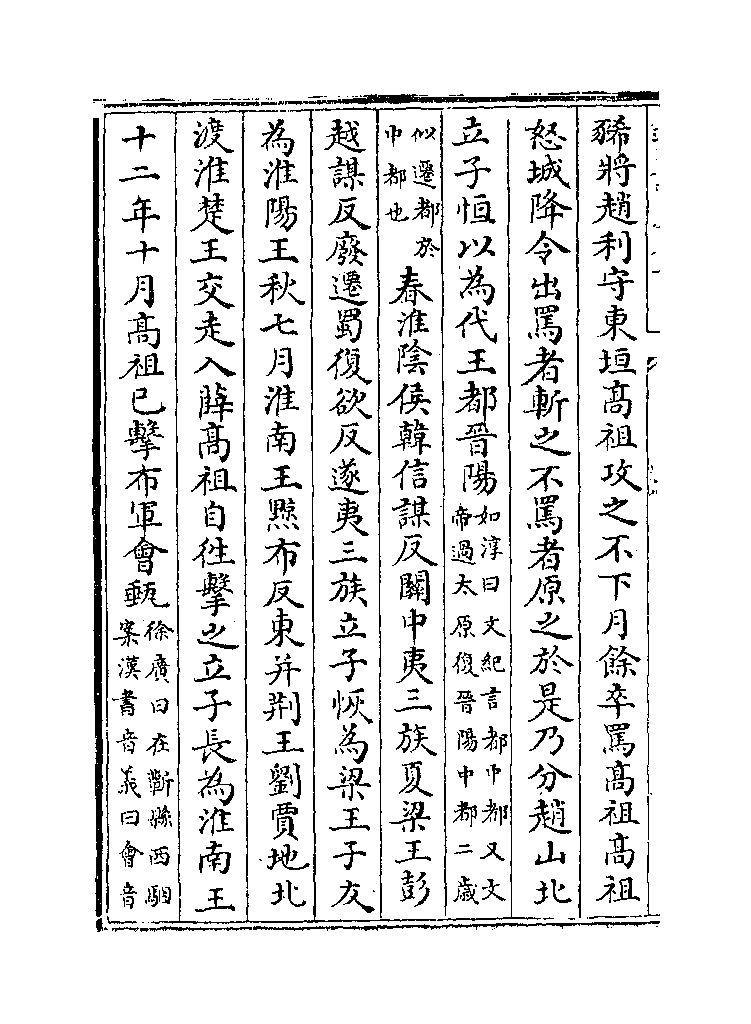 豨將趙利守東垣髙祖攻之不下月餘卒罵髙祖髙祖
怒城降令出罵者斬之不罵者原之於是乃分趙山北
立子恒以為代王都晉陽如淳曰文紀言都中都又文
帝過太原復晉陽中都二歲
似遷都於
中都也
春淮陰侯韓信謀反關中夷三族夏梁王彭
越謀反廢遷蜀復欲反遂夷三族立子恢為梁王子友
為淮陽王秋七月淮南王黥布反東并荆王劉賈地北
渡淮楚王交走入薛髙祖自往擊之立子長為淮南王
十二年十月髙祖已擊布軍會甀徐廣曰在蘄縣西駰
案漢書音義曰會音